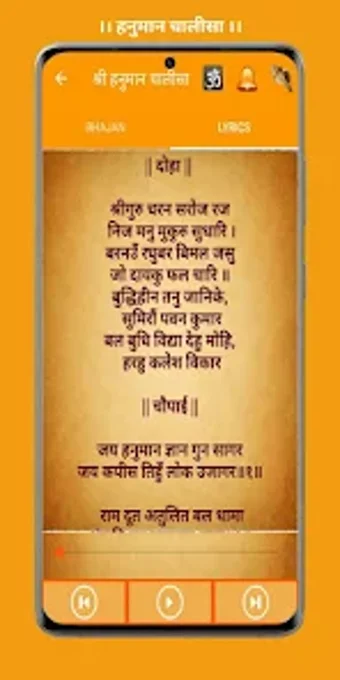 ।। हनुमान चालीसा ।।
श्री हनुमान चालीसा
BHAJAN
LYRICS
|| दोहा ||
श्रीगुरु चरन सरोज रज
निज मनु मुकुरू सुधारि ।
बरनउँ रघुबर बिमल जसु
जो दायकु फल चारि ॥
बुद्धिहीन तनु जानिके,
सुमिरौं पवन कुमार
बल बुधि विद्या देहु मोहि,
हरहु कलेश विकार
|| चौपाई ||
जय हनुमान ज्ञान गुन सागर
जय कपीस तिहुँ लोक उजागर॥१॥
राम दूत अतुलित बल धामा